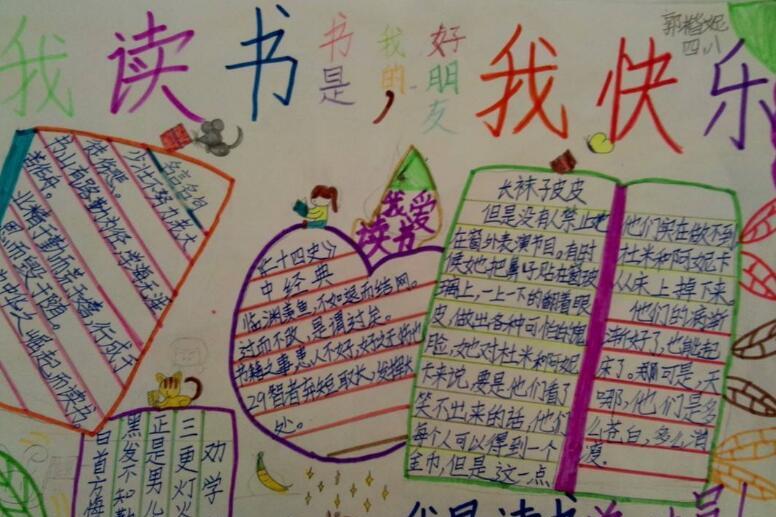 我读书
书是
我的
好朋友
,我快乐
郭
四.八
名言名句
少壮不努力,老大
徒伤悲。
书山有路勤为径,学海无涯
苦作舟。
业精于勤而荒于嬉,行成于
思而毁于随。
崛起而读书。
我爱
读书
《二十四史》
中经典
临渊羡鱼,不如退而结网。
过而不改,是谓过矣。
智者弃短取长,
长袜子皮皮
但是没有人禁止她
在窗外表演节目。有时
候她把鼻子贴在窗玻
璃上,一上一下的翻着眼
皮,做出各种可怕的鬼
脸,她也对杜米和阿妮
卡来说,要是他们看了
笑不出来的话,他们
每个人可以得到一个
金币,但是这一点
他们实在做不到
杜米和阿妮卡
从床上掉下来。
他们的病渐
渐好了,也能起
床了。啊可是,天
哪,他们是多
么苍白,多么消
瘦。
劝学
三更灯火
正是男儿
黑发不知勤
白首方悔